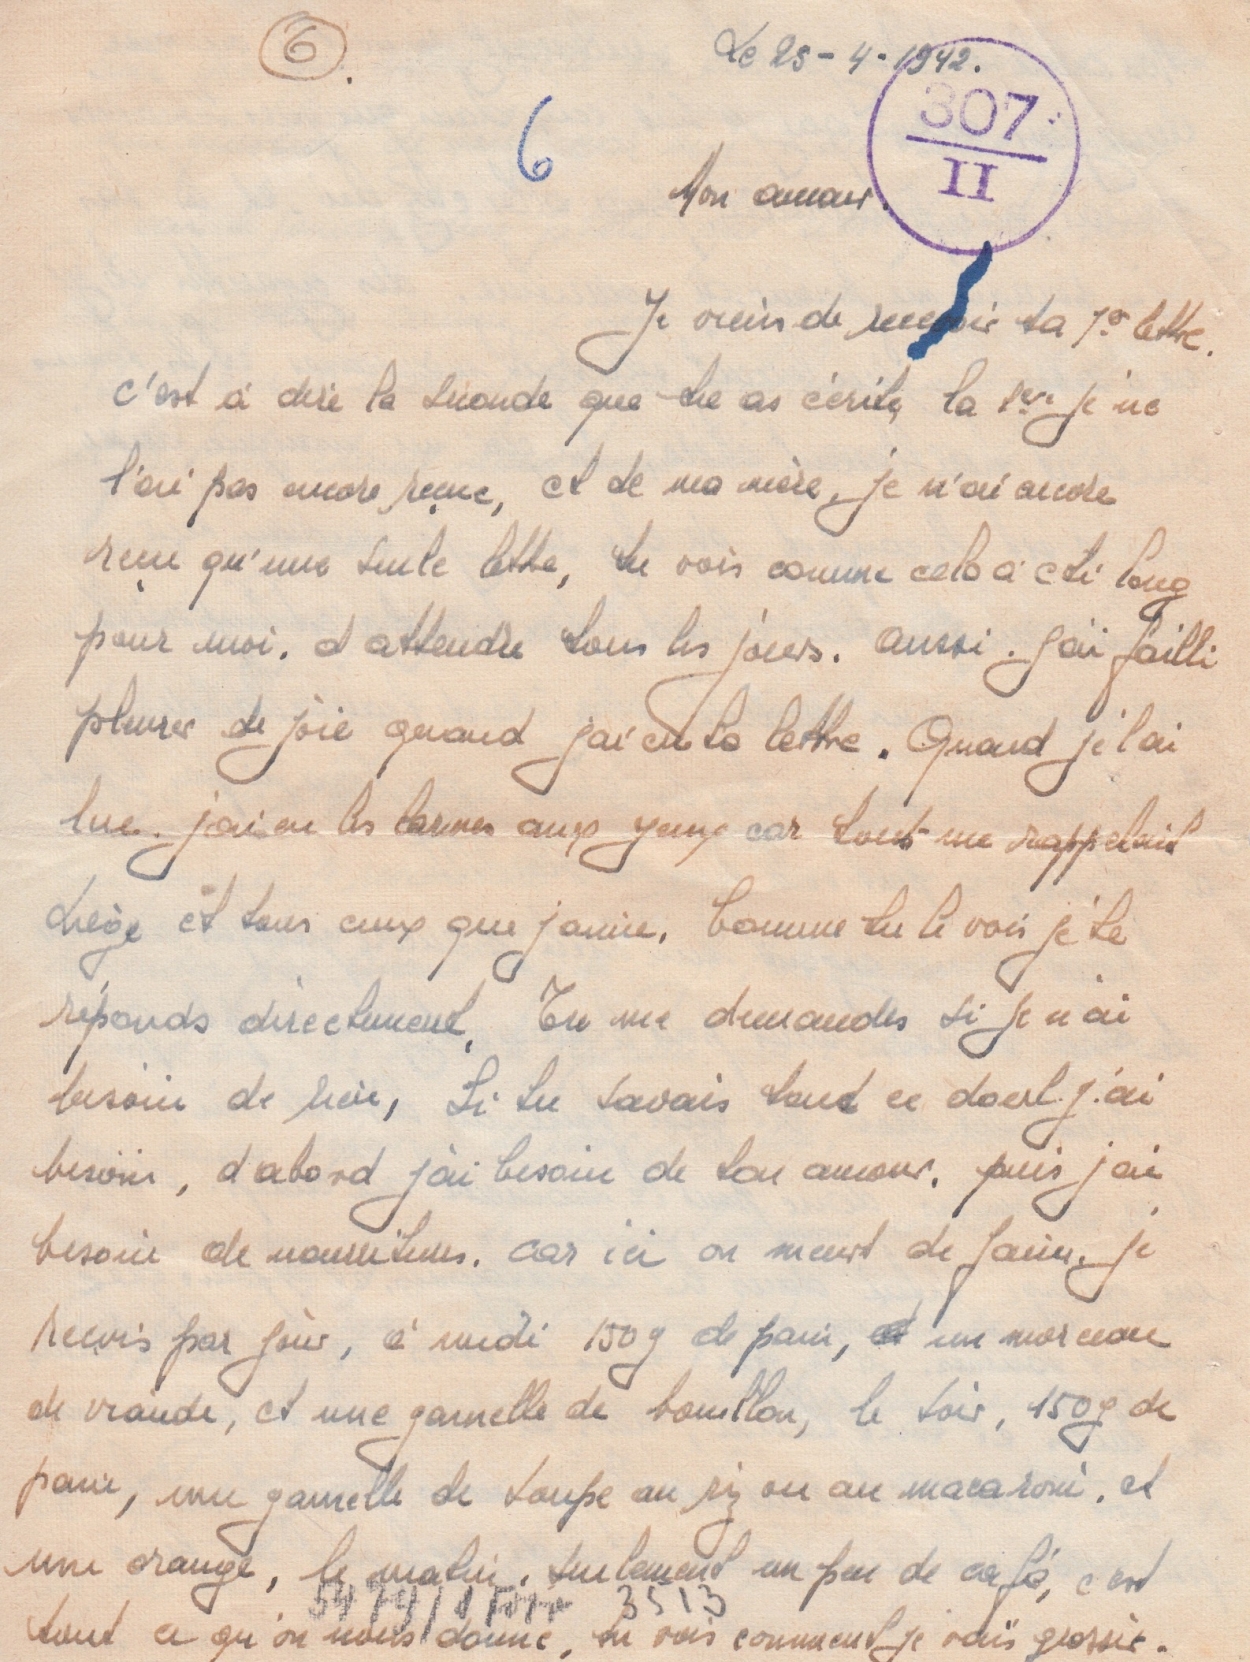 6.
Le 25-4-1942.
307
II
6
Mon amour.
Je viens de recevoir ta 1re lettre.
c'est à dire la seconde que tu as écrite, la 1ère je ne
l'ai pas encore reçue, et de ma mère, je n'ai encore
reçu qu'une seule lettre, tu vois comme cela a été long
pour moi. d'attendre tous les jours. aussi. j'ai failli
pleurer de joie quand j'ai eu ta lettre. Quand je l'ai
lue. j'ai eu les larmes aux yeux car tout me rappelait
Liège et tous ceux que j'aime. Comme tu le vois je te
réponds directement, Tu me demandes si je n'ai
besoin de rien, Si tu savais tout ce dont j'ai
besoin, d'abord j'ai besoin de ton amour. puis j'ai
besoin de nourritures. car ici on meurt de faim. je
reçois par jour, à midi 150g de pain, et un morceau
de viande, et une gamelle de bouillon, le soir, 150g de
pain, une gamelle de soupe au riz ou au macaroni. et
une orange, le matin. seulement un peu de café, c'est
3513
tout ce qu'on nous donne, tu vois comment je vais grossir.